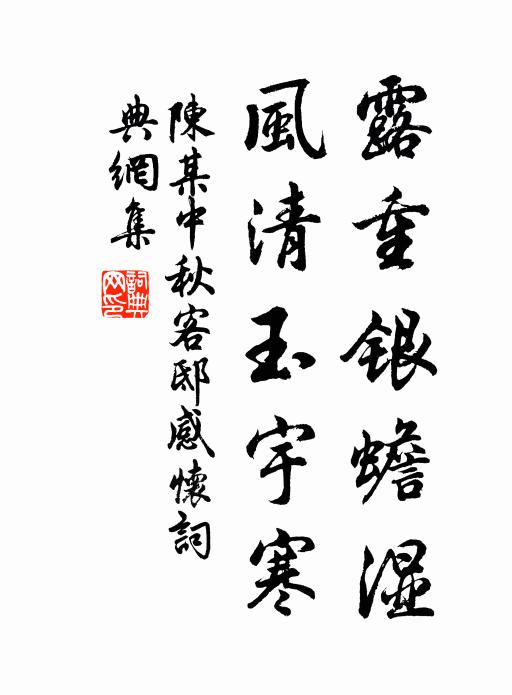 露重銀蟾湿
風清玉宇寒
陳某中秋客邸感懷詞
典網集
詞典
网印